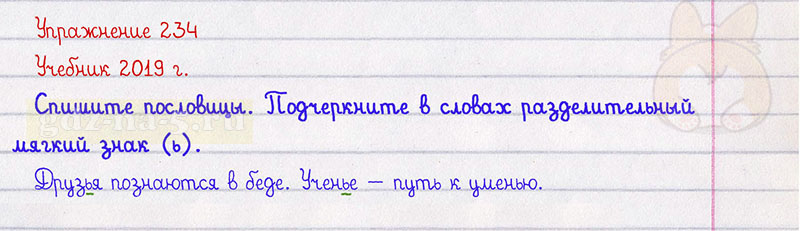 Упражнение 234
Учебник 2019 г.
Спишите пословицы. Подчеркните в словах разделительный
мягкий знак (ь).
Друзья познаются в беде. Ученье — путь к уменью.